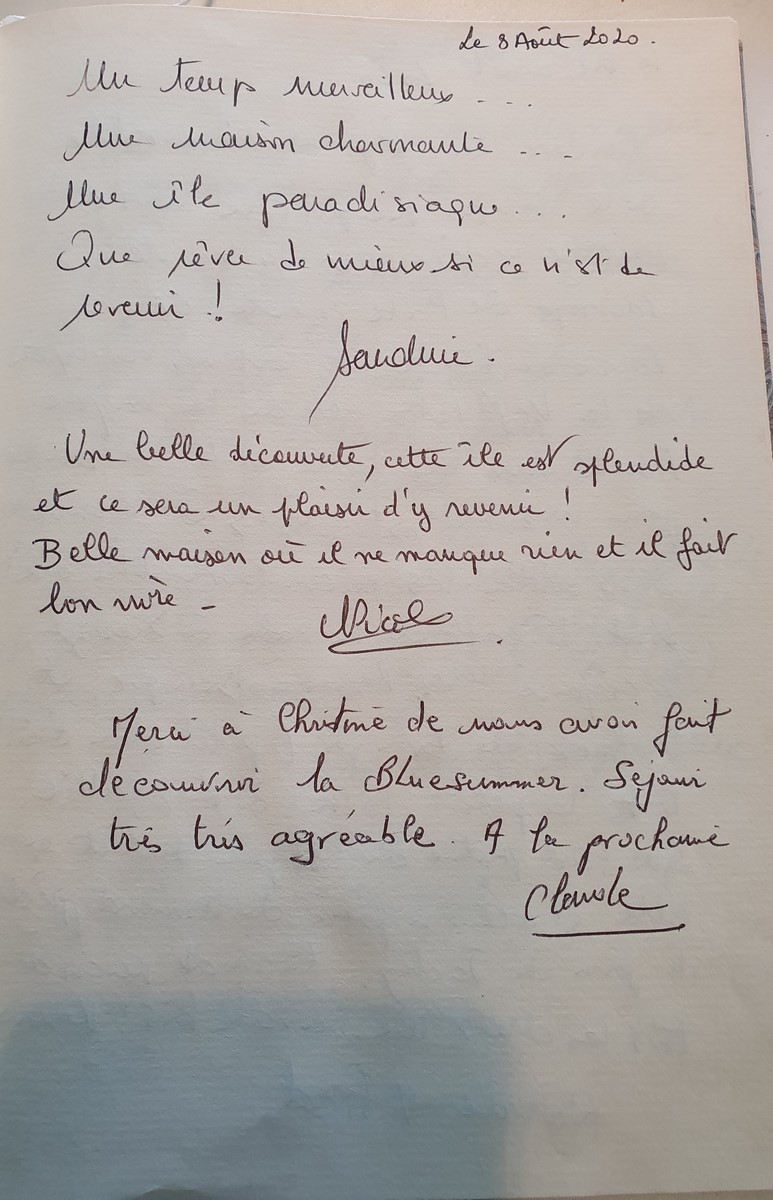 Le 8 Août 2020.
Un temps merveilleux ....
Une maison charmante ...
Une île paradisiaque ...
Que rêver de mieux si ce n'est de
revenir !
Sandrine.
Une belle découverte, cette île est splendide
et ce sera un plaisir d'y revenir !
Belle maison où il ne manque rien et il fait
bon vivre -
Nicole
Merci à Christine de nous avoir fait
découvrir la Bluesummer. Séjour
très très agréable. A la prochaine
Claude